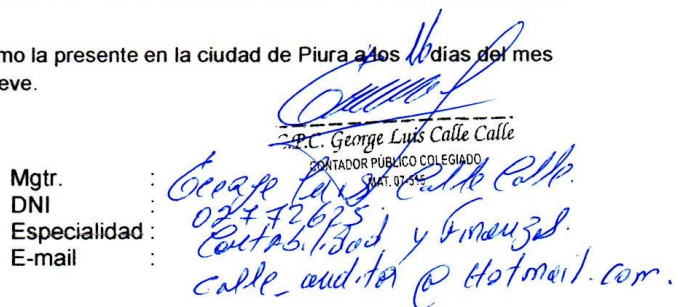 mo la presente en la ciudad de Piura a los 16 días del mes
eve.
C.P.C. George Luis Calle Calle
CONTADOR PÚBLICO COLEGIADO
MAT. 07-515
Mgtr. : George Luis Calle Calle.
DNI : 02772625.
Especialidad : Contabilidad y Finanzas.
E-mail : calle_auditor @ Hotmail.com.